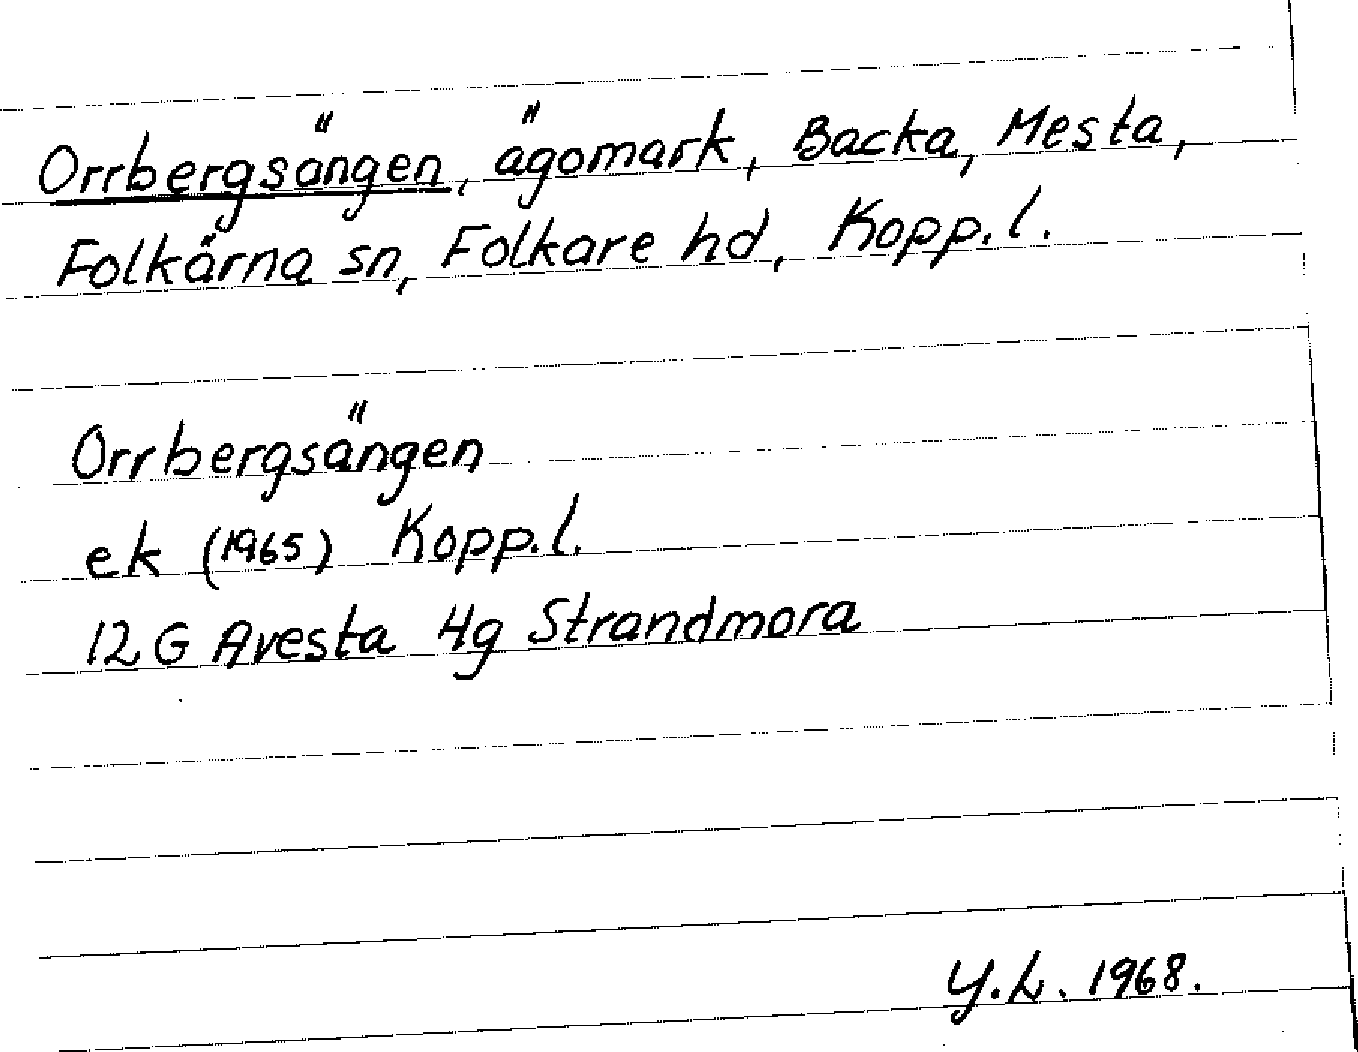 Orrbergsängen, ägomark, Backa, Mesta,
Folkärna sn, Folkare hd, Kopp. l.
Orrbergsängen
ek (1965) Kopp. l.
12 G Avesta 4g Strandmora
Y.L. 1968.